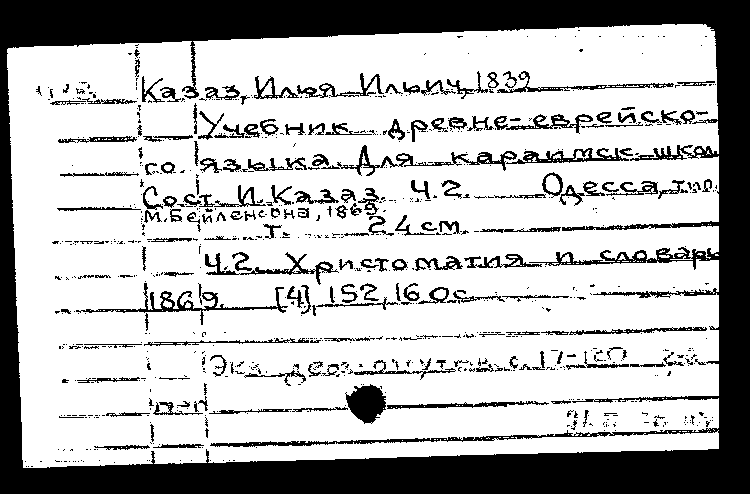 Казаз, Илья Ильич, 1839
Учебник древне-еврейско-
го языка. Для караимск. школ.
Сост. И. Казаз. Ч.2. Одесса, тип.
М. Бейленсона, 1869.
т. 24 см.
Ч.2. Христоматия и словарь
1869. [4], 152, 160с
Экз. с. 17-